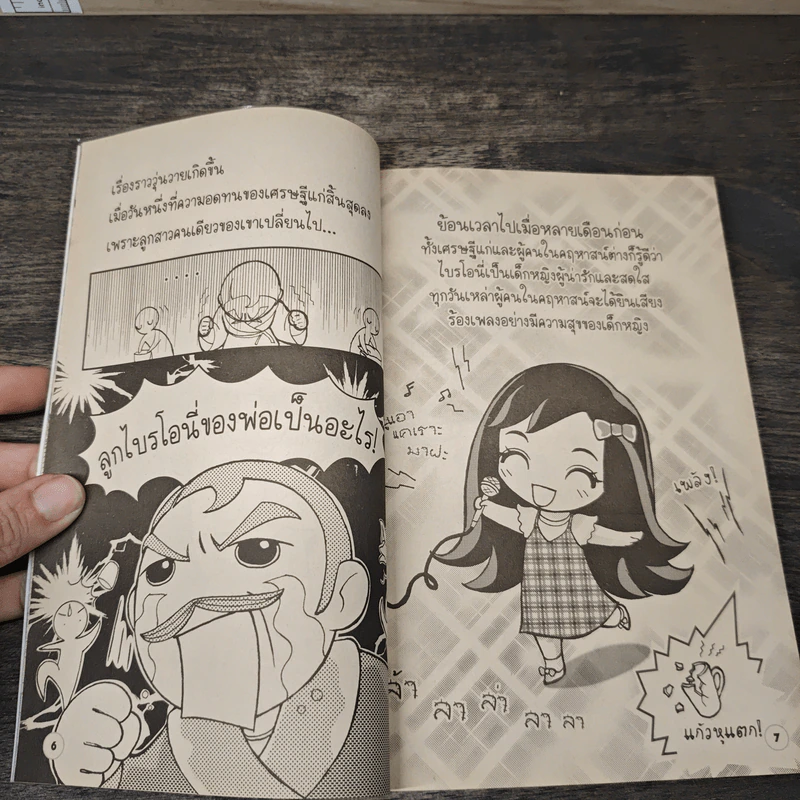 เรื่องราววุ่นวายเกิดขึ้น
เมื่อวันหนึ่งที่ความอดทนของเศรษฐีแก่สิ้นสุดลง
เพราะลูกสาวคนเดียวของเขาเปลี่ยนไป...
ลูกไบรโอนี่ของพ่อเป็นอะไร!
6
ย้อนเวลาไปเมื่อหลายเดือนก่อน
ทั้งเศรษฐีแก่และผู้คนในคฤหาสน์ต่างก็รู้ดีว่า
ไบรโอนี่เป็นเด็กหญิงผู้น่ารักและสดใส
ทุกวันเหล่าผู้คนในคฤหาสน์จะได้ยินเสียง
ร้องเพลงอย่างมีความสุขของเด็กหญิง
แคเราะ
มาฝะ
เพล้ง!
ลา ล่า ลา ลา
แก้วหูแตก!
7